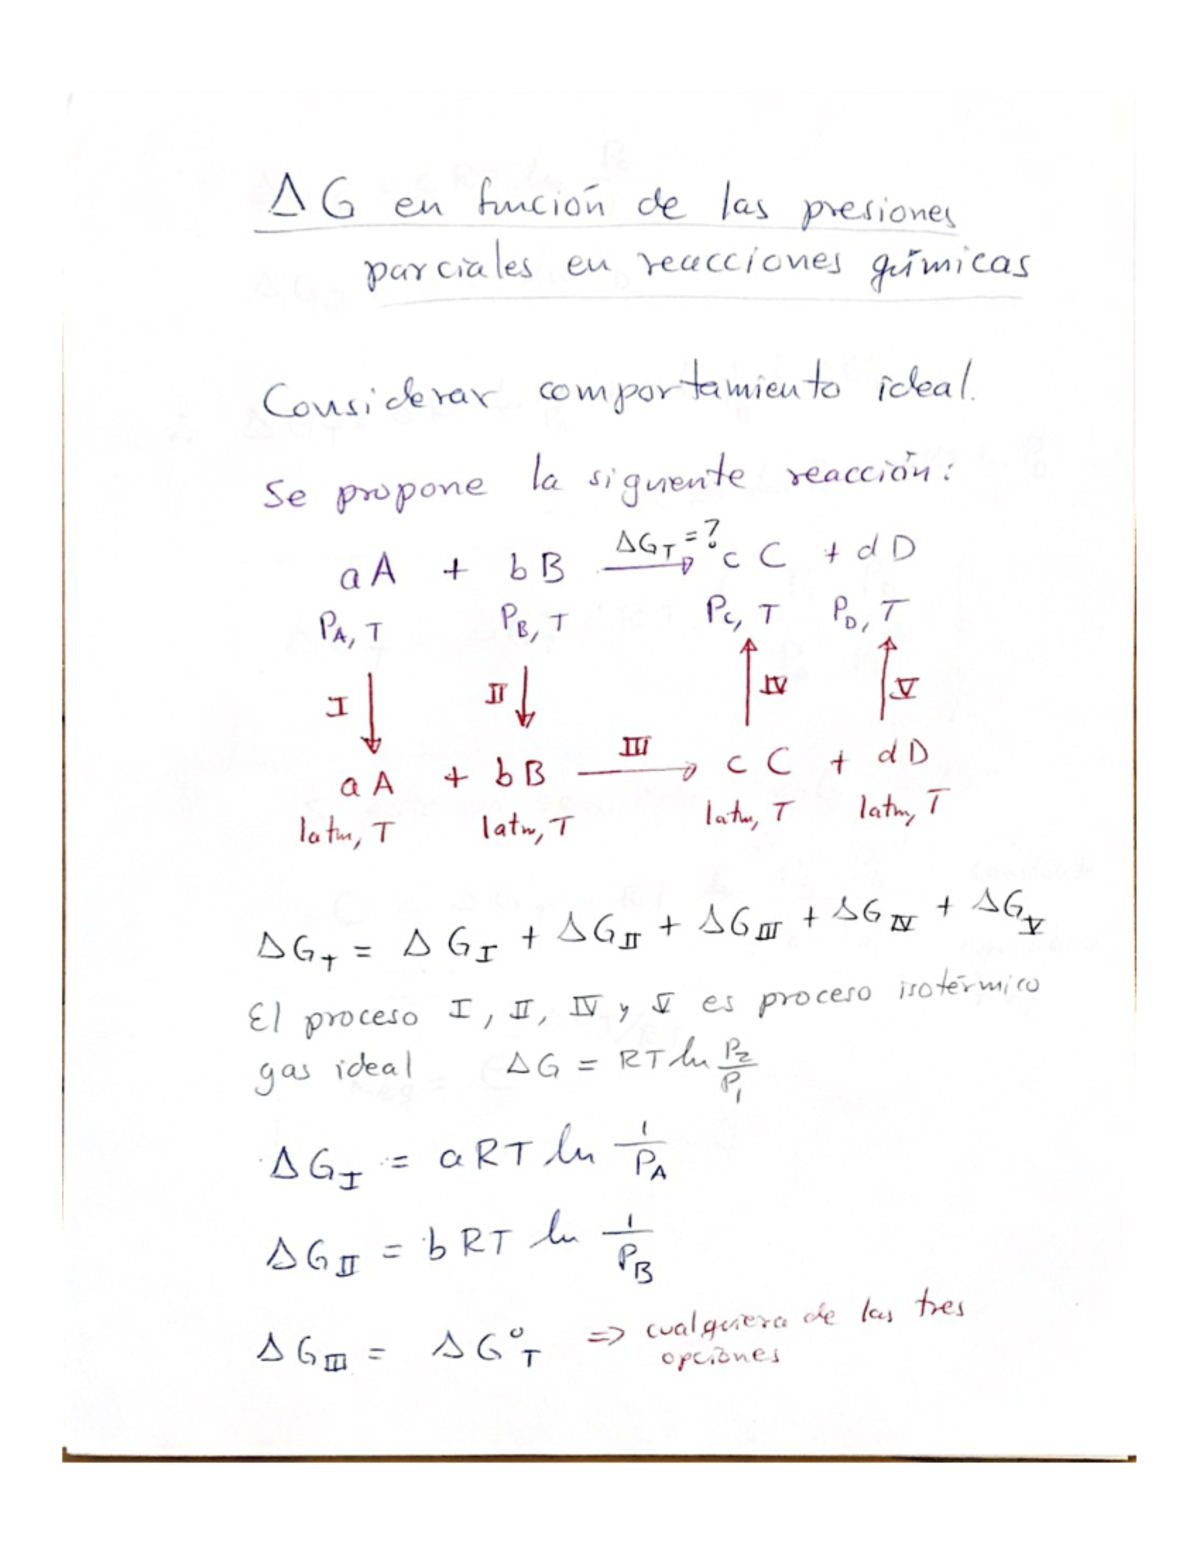 ΔG en función de las presiones
parciales en reacciones químicas
Considerar comportamiento ideal.
Se propone la siguiente reacción:
aA + bB ΔG_T = ? → cC + dD
P_A, T P_B, T P_C, T P_D, T
I ↓ II ↓ ↑ IV ↑ V
aA + bB III → cC + dD
1atm, T 1atm, T 1atm, T 1atm, T
ΔG_T = ΔG_I + ΔG_II + ΔG_III + ΔG_IV + ΔG_V
El proceso I, II, IV y V es proceso isotérmico
gas ideal ΔG = RT ln P_2/P_1
ΔG_I = aRT ln 1/P_A
ΔG_II = bRT ln 1/P_B
ΔG_III = ΔG°_T => cualquiera de las tres
opciones